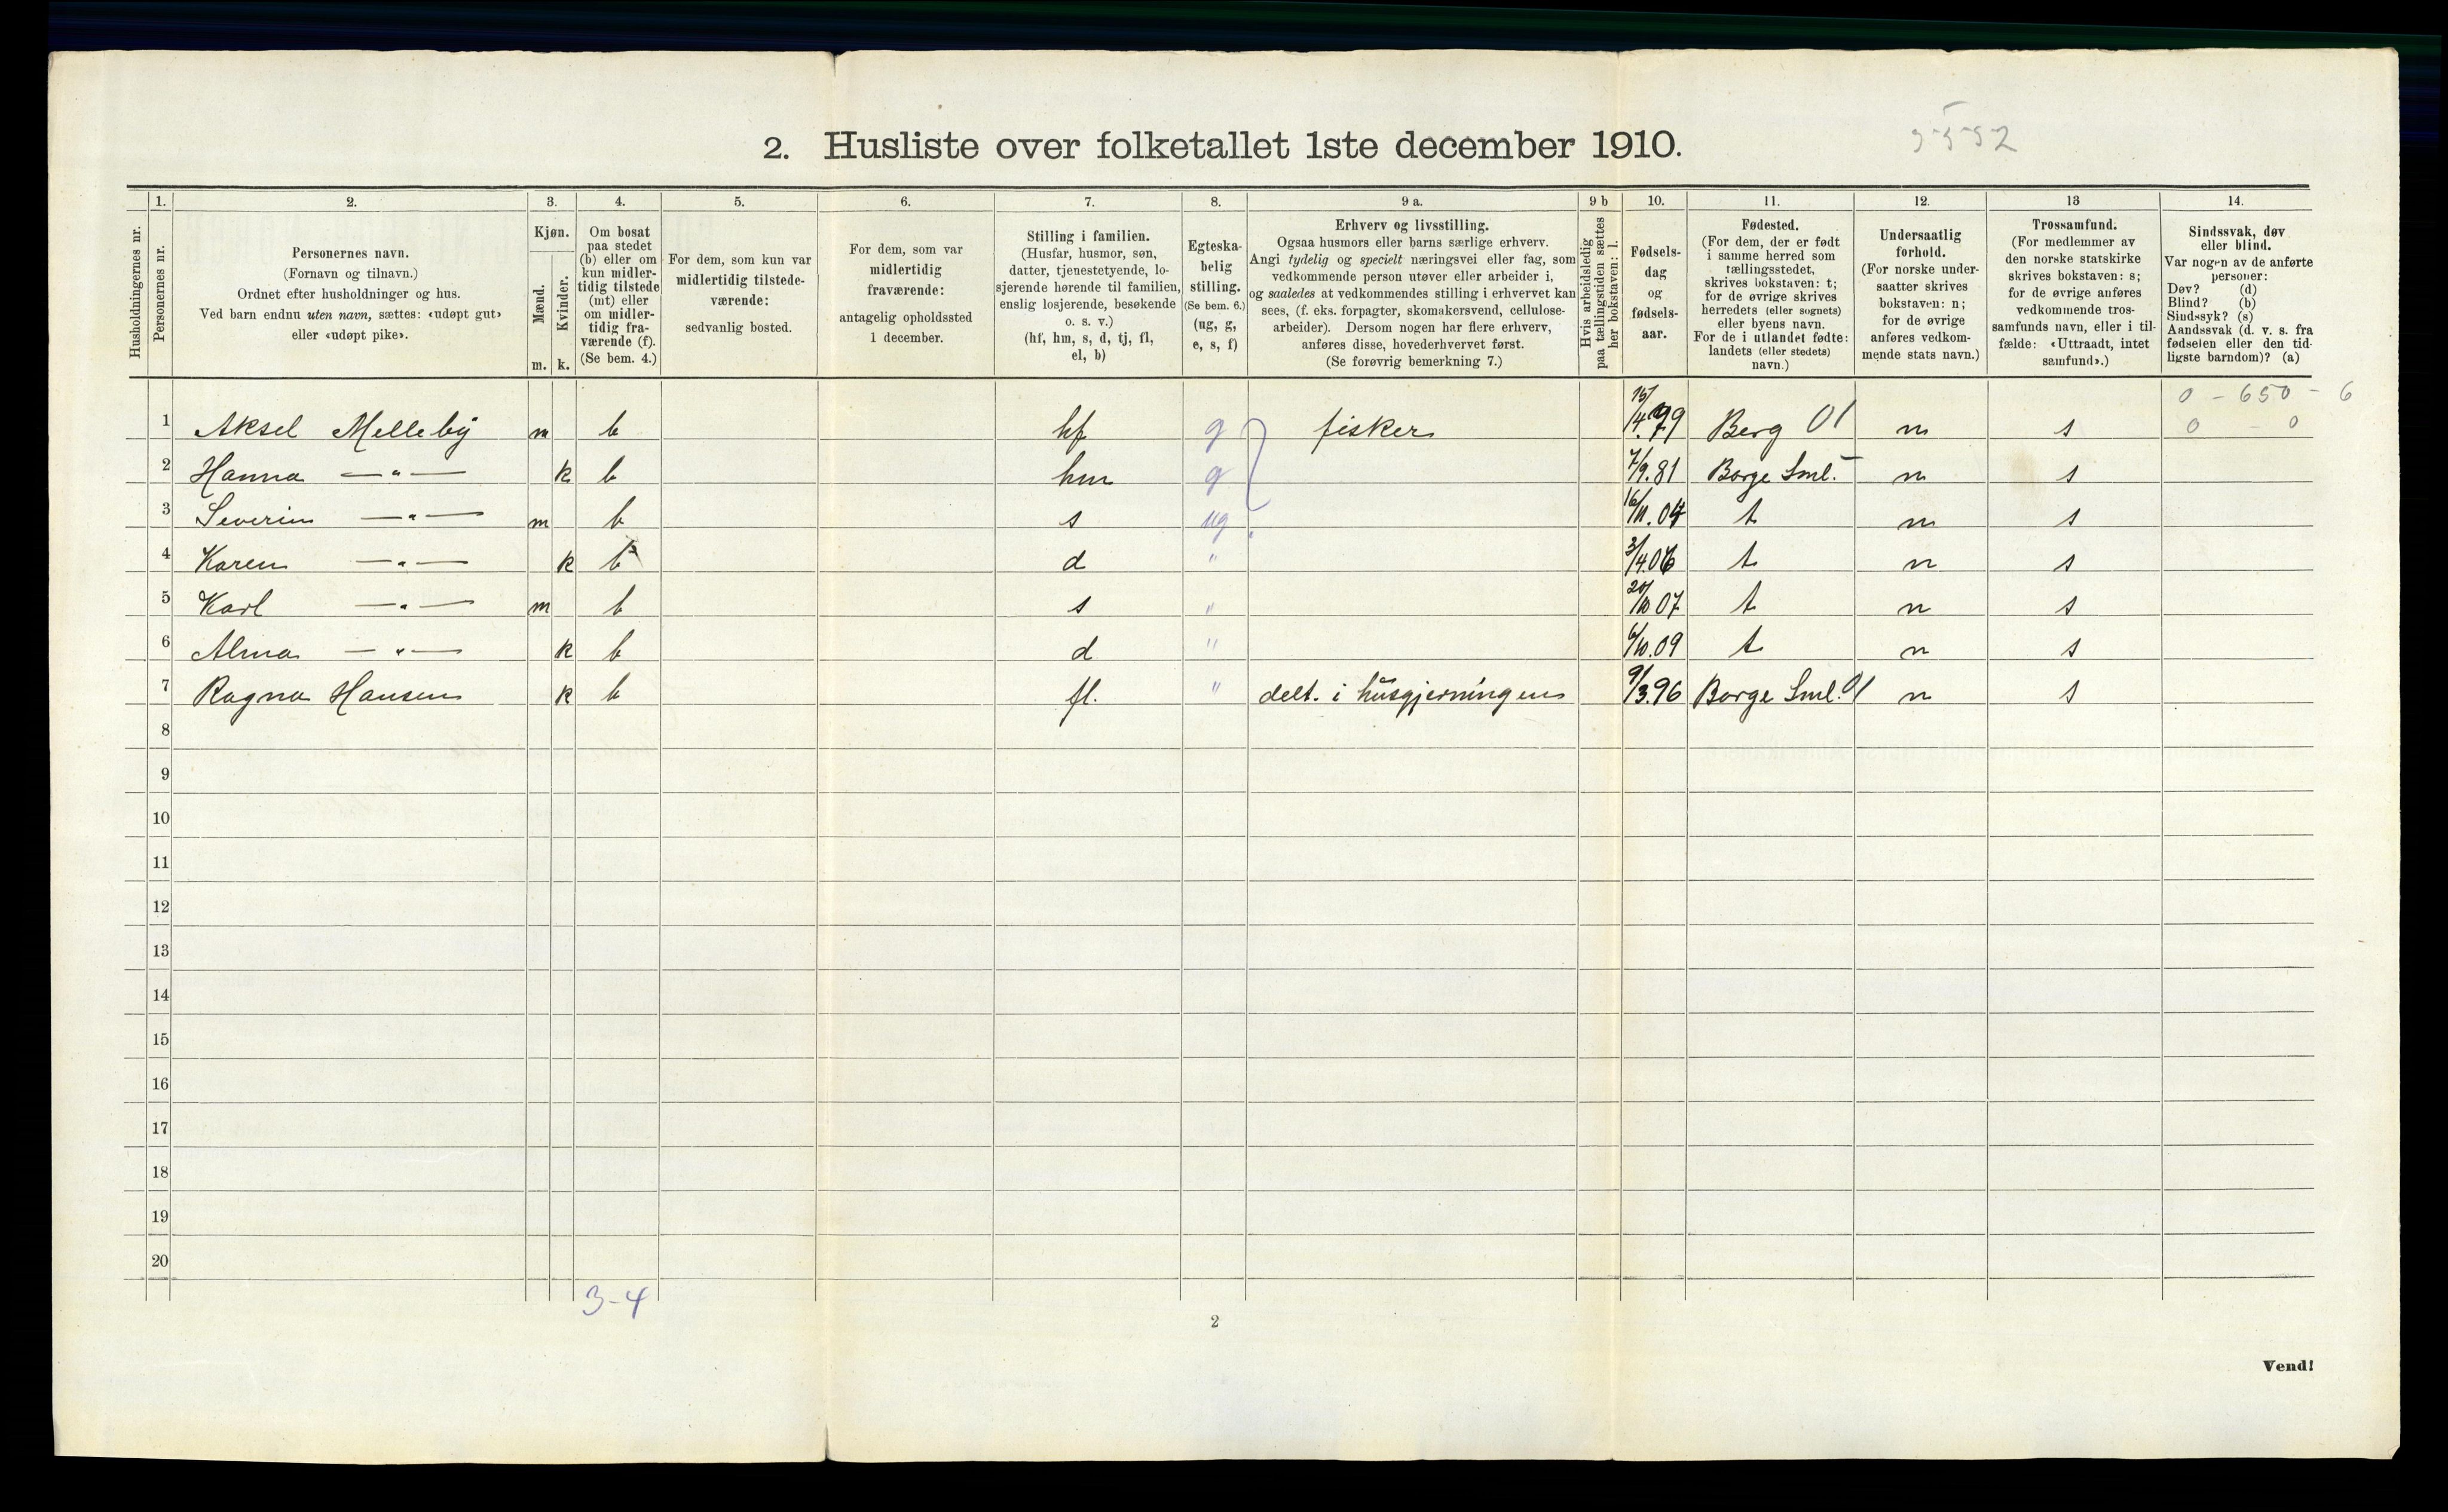 2. Husliste over folketallet 1ste december 1910.
Husholdningernes nr.
1.
Personernes nr.
2.
Personernes navn.
(Fornavn og tilnavn.)
Ordnet efter husholdninger og hus.
Ved barn endnu uten navn, sættes: «udøpt gut»
eller «udøpt pike».
3.
Kjøn.
Mænd.
Kvinder.
m. k.
4.
Om bosat
paa stedet
(b) eller om
kun midler-
tidig tilstede
(mt) eller
om midler-
tidig fra-
værende (f).
(Se bem. 4.)
5.
For dem, som kun var
midlertidig tilstede-
værende:
sedvanlig bosted.
6.
For dem, som var
midlertidig
fraværende:
antagelig opholdssted
1 december.
7.
Stilling i familien.
(Husfar, husmor, søn,
datter, tjenestetyende, lo-
sjerende hørende til familien,
enslig losjerende, besøkende
o. s. v.)
(hf, hm, s, d, tj, fl,
el, b)
8.
Egteska-
belig
stilling.
(Se bem. 6.)
(ug, g,
e, s, f)
9 a.
Erhverv og livsstilling.
Ogsaa husmors eller barns særlige erhverv.
Angi tydelig og specielt næringsvei eller fag, som
vedkommende person utøver eller arbeider i,
og saaledes at vedkommendes stilling i erhvervet kan
sees, (f. eks. forpagter, skomakersvend, cellulose-
arbeider). Dersom nogen har flere erhverv,
anføres disse, hovederhvervet først.
(Se forøvrig bemerkning 7.)
9 b
Hvis arbeidsledig
paa tællingstiden sættes
her bokstaven: l.
10.
Fødsels-
dag
og
fødsels-
aar.
11.
Fødested.
(For dem, der er født
i samme herred som
tællingsstedet,
skrives bokstaven: t;
for de øvrige skrives
herredets (eller sognets)
eller byens navn.
For de i utlandet fødte:
landets (eller stedets)
navn.)
12.
Undersaatlig
forhold.
(For norske under-
saatter skrives
bokstaven: n;
for de øvrige
anføres vedkom-
mende stats navn.)
13
Trossamfund.
(For medlemmer av
den norske statskirke
skrives bokstaven: s;
for de øvrige anføres
vedkommende tros-
samfunds navn, eller i til-
fælde: «Uttraadt, intet
samfund».)
14.
Sindssvak, døv
eller blind.
Var nogen av de anførte
personer:
Døv? (d)
Blind? (b)
Sindssyk? (s)
Aandssvak (d. v. s. fra
fødselen eller den tid-
ligste barndom)? (a)
0 - 650 - 6
1 Aksel Melleby m b hf g fisker 15/4.79 Berg 01 n s 0 - 0
2 Hanna —"— k b hm g 7/9.81 Borge Sml. n s
3 Severin —"— m b s ug 16/11.04 t n s
4 Karen —"— k b d " 3/4.06 t n s
5 Karl —"— m b s " 20/10 07 t n s
6 Alma —"— k b d " 6/10.09 t n s
7 Ragna Hansen k b fl. " delt. i husgjerningen 9/3.96 Borge Sml. 01 n s
8
9
10
11
12
13
14
15
16
17
18
19
20
3-4
2
Vend!